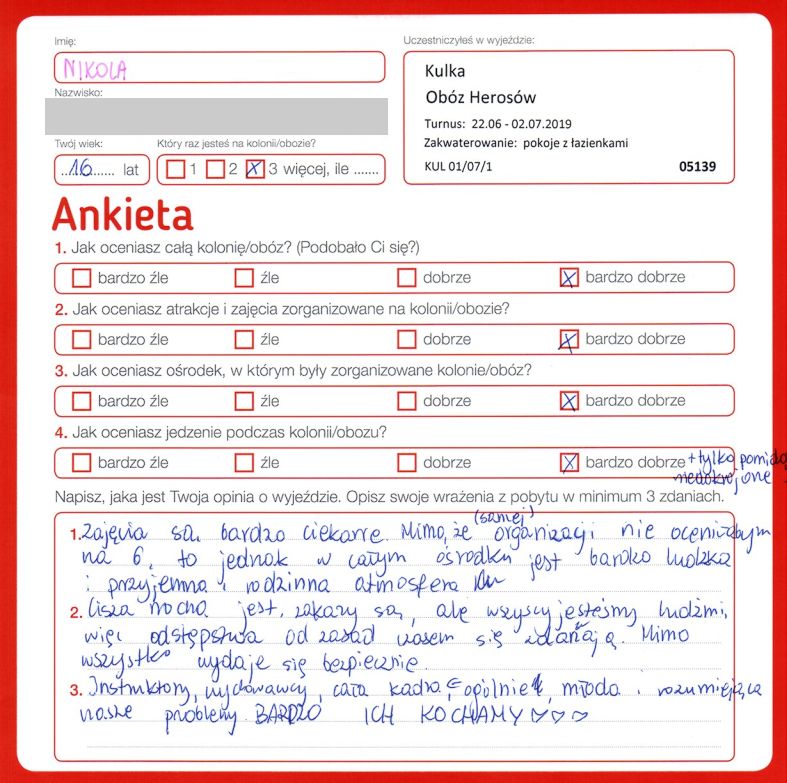 Imię:
NIKOLA
Nazwisko:
Twój wiek:
16 lat
Który raz jesteś na kolonii/obozie?
1 2 3 więcej, ile .......
Uczestniczyłeś w wyjeździe:
Kulka
Obóz Herosów
Turnus: 22.06 - 02.07.2019
Zakwaterowanie: pokoje z łazienkami
KUL 01/07/1 05139
Ankieta
1. Jak oceniasz całą kolonię/obóz? (Podobało Ci się?)
bardzo źle źle dobrze bardzo dobrze
2. Jak oceniasz atrakcje i zajęcia zorganizowane na kolonii/obozie?
bardzo źle źle dobrze bardzo dobrze
3. Jak oceniasz ośrodek, w którym były zorganizowane kolonie/obóz?
bardzo źle źle dobrze bardzo dobrze
4. Jak oceniasz jedzenie podczas kolonii/obozu?
bardzo źle źle dobrze bardzo dobrze + tylko
Napisz, jaka jest Twoja opinia o wyjeździe. Opisz swoje wrażenia z pobytu w minimum 3 zdaniach.
1. Zajęcia są bardzo ciekawe. Mimo, że (samej) organizacji nie oceniłabym
na 6, to jednak w całym ośrodku jest bardzo ludzka
i przyjemna, rodzinna atmosfera
2. Cisza nocna jest, zakazy są, ale wszyscy jesteśmy ludźmi,
więc odstępstwa od zasad czasem się zdarzają. Mimo
wszystko wydaje się bezpiecznie.
3. Instruktorzy, wychowawcy, cała kadra, ogólnie, młoda i rozumiejąca
nasze problemy. BARDZO ICH KOCHAMY ♡ ♡ ♡